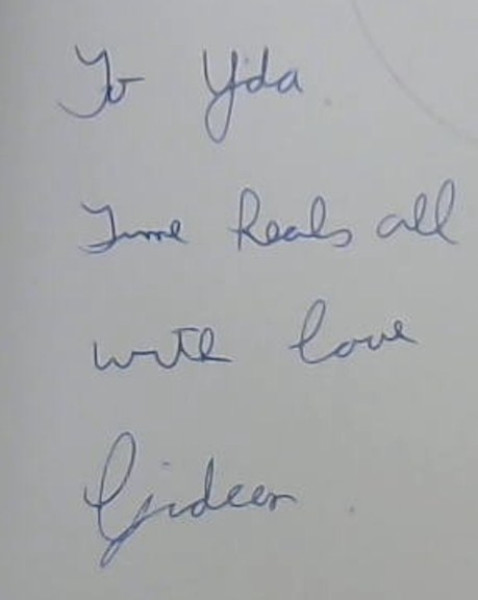 To Yda
Time heals all
with love
Gideon